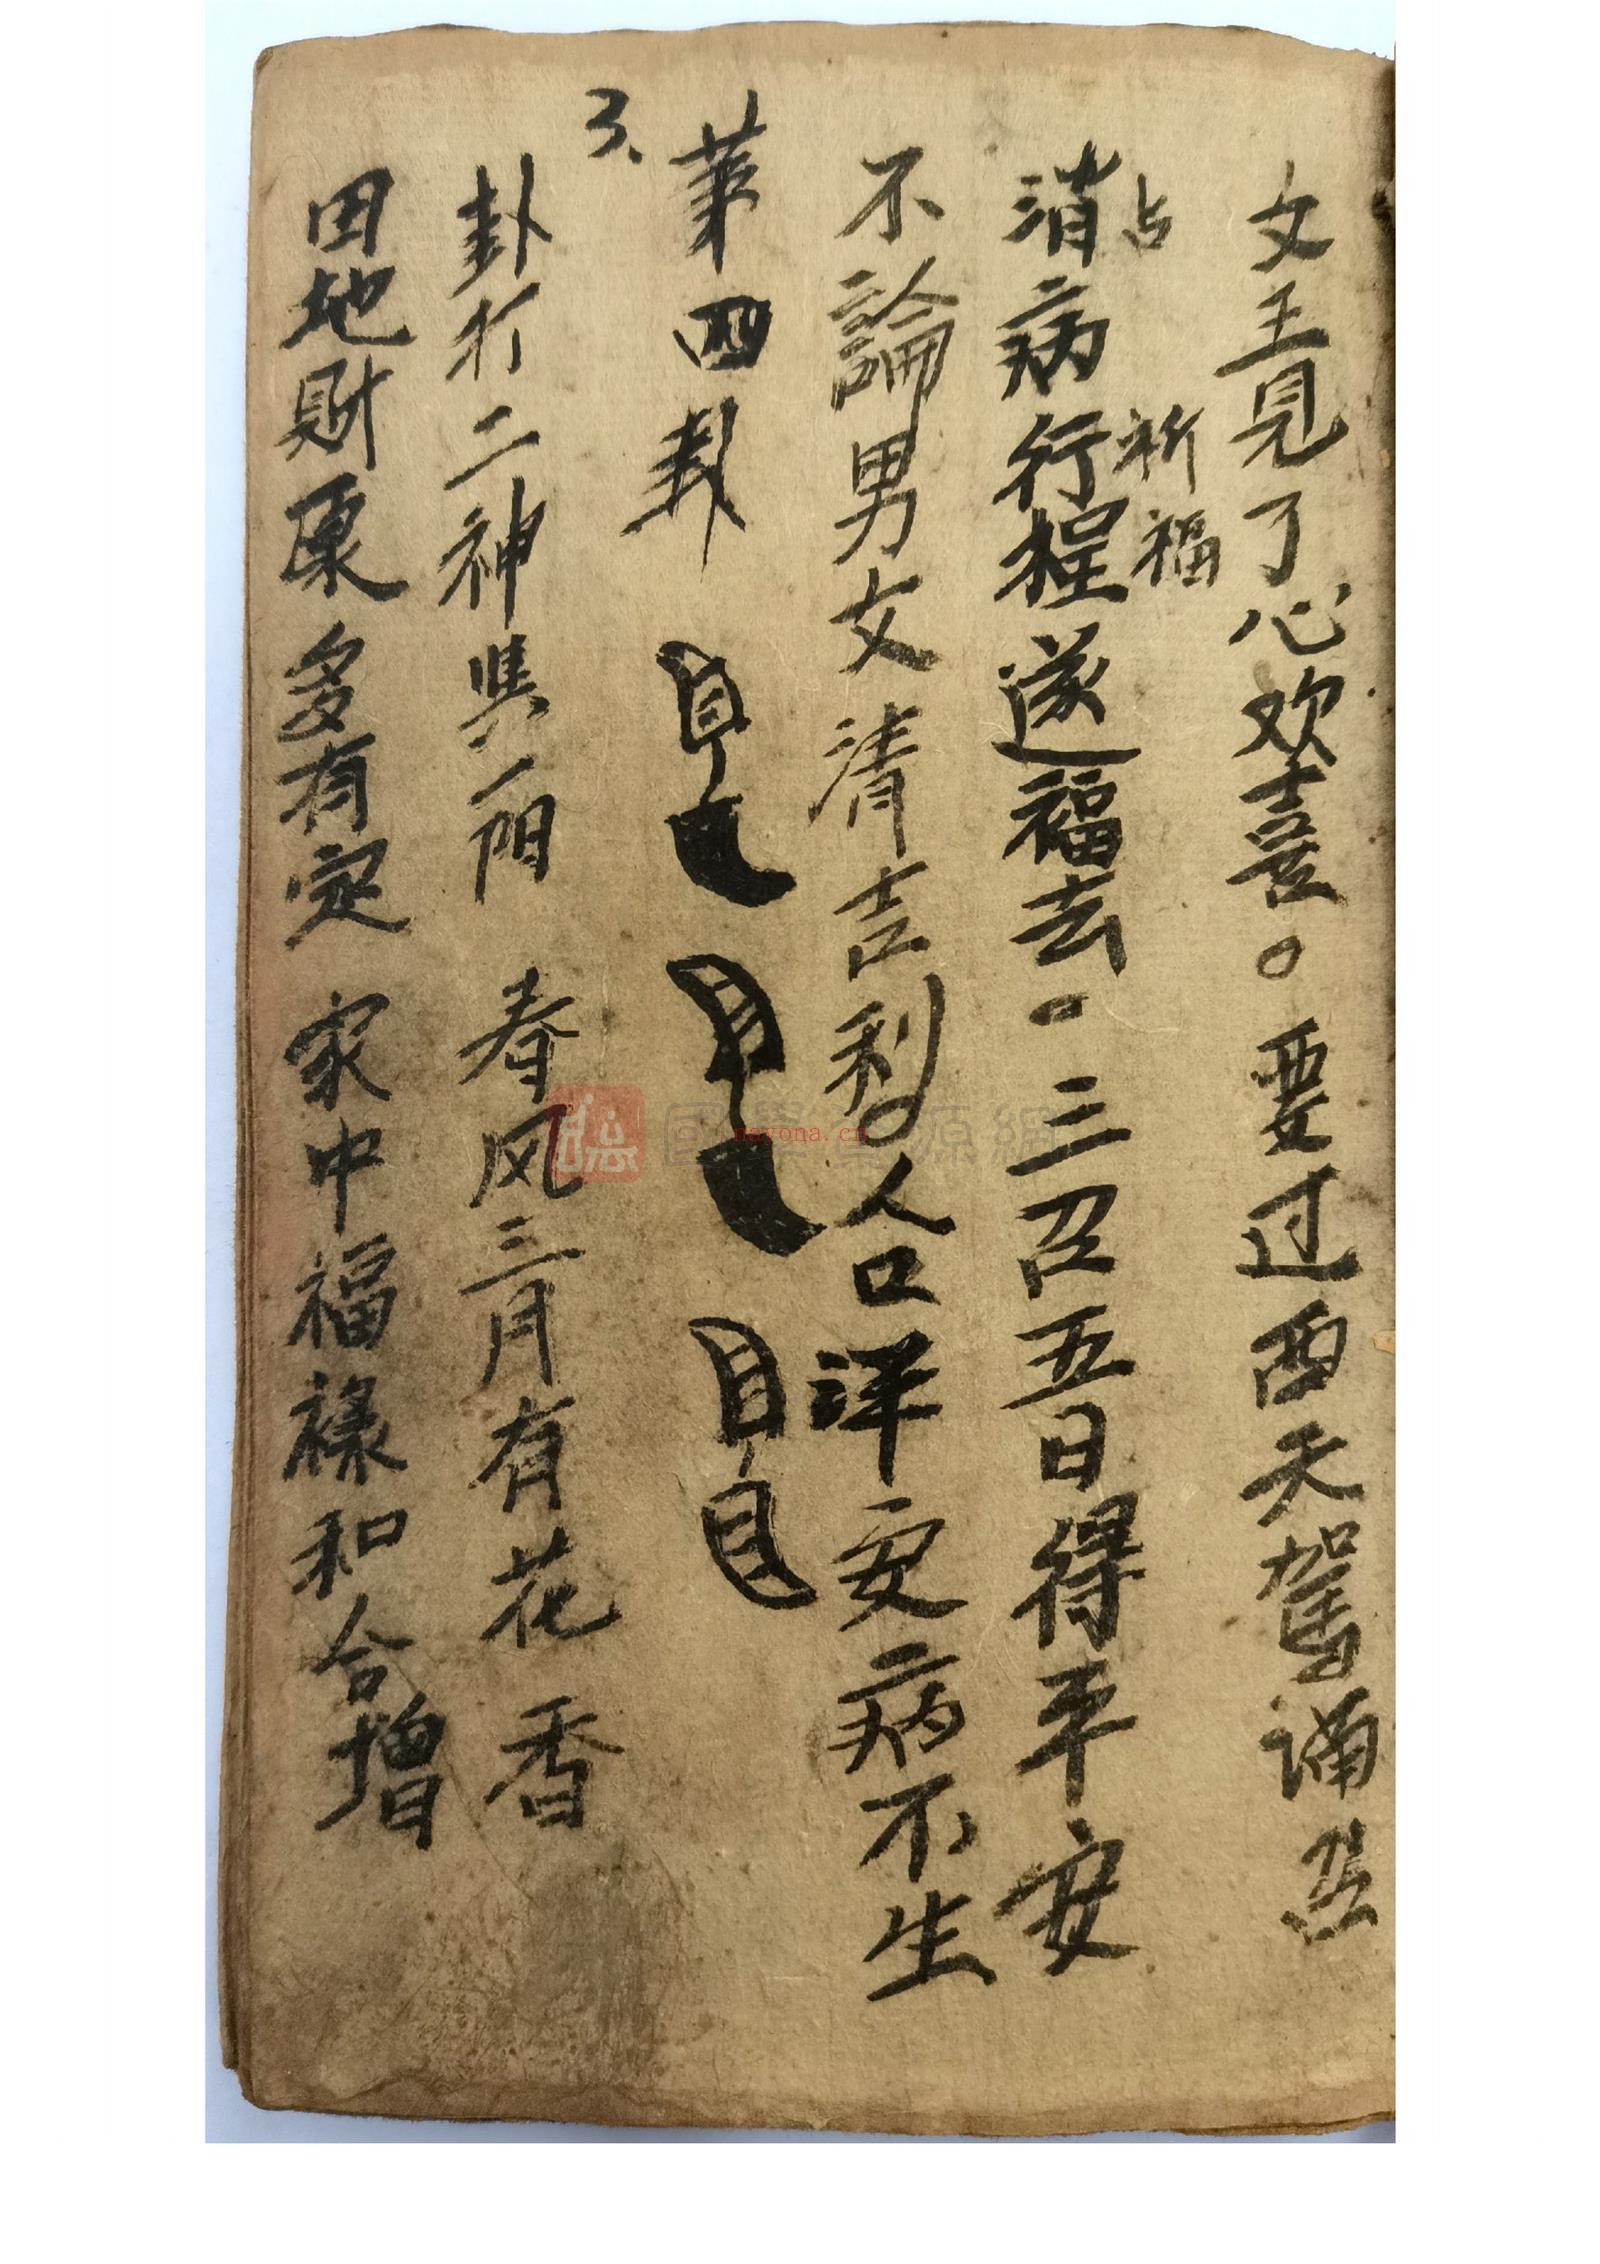 文王見了心欢喜。要过西天駕誦
占 祈福
消病行程遂福去。三召五日得平安
不論男女清吉利〇人口洋安病不生
第四卦
3、
卦行二神異一阳 春风三月有花香
田地財原多有定 家中福禄和合增
國學 源網
nayona.cn